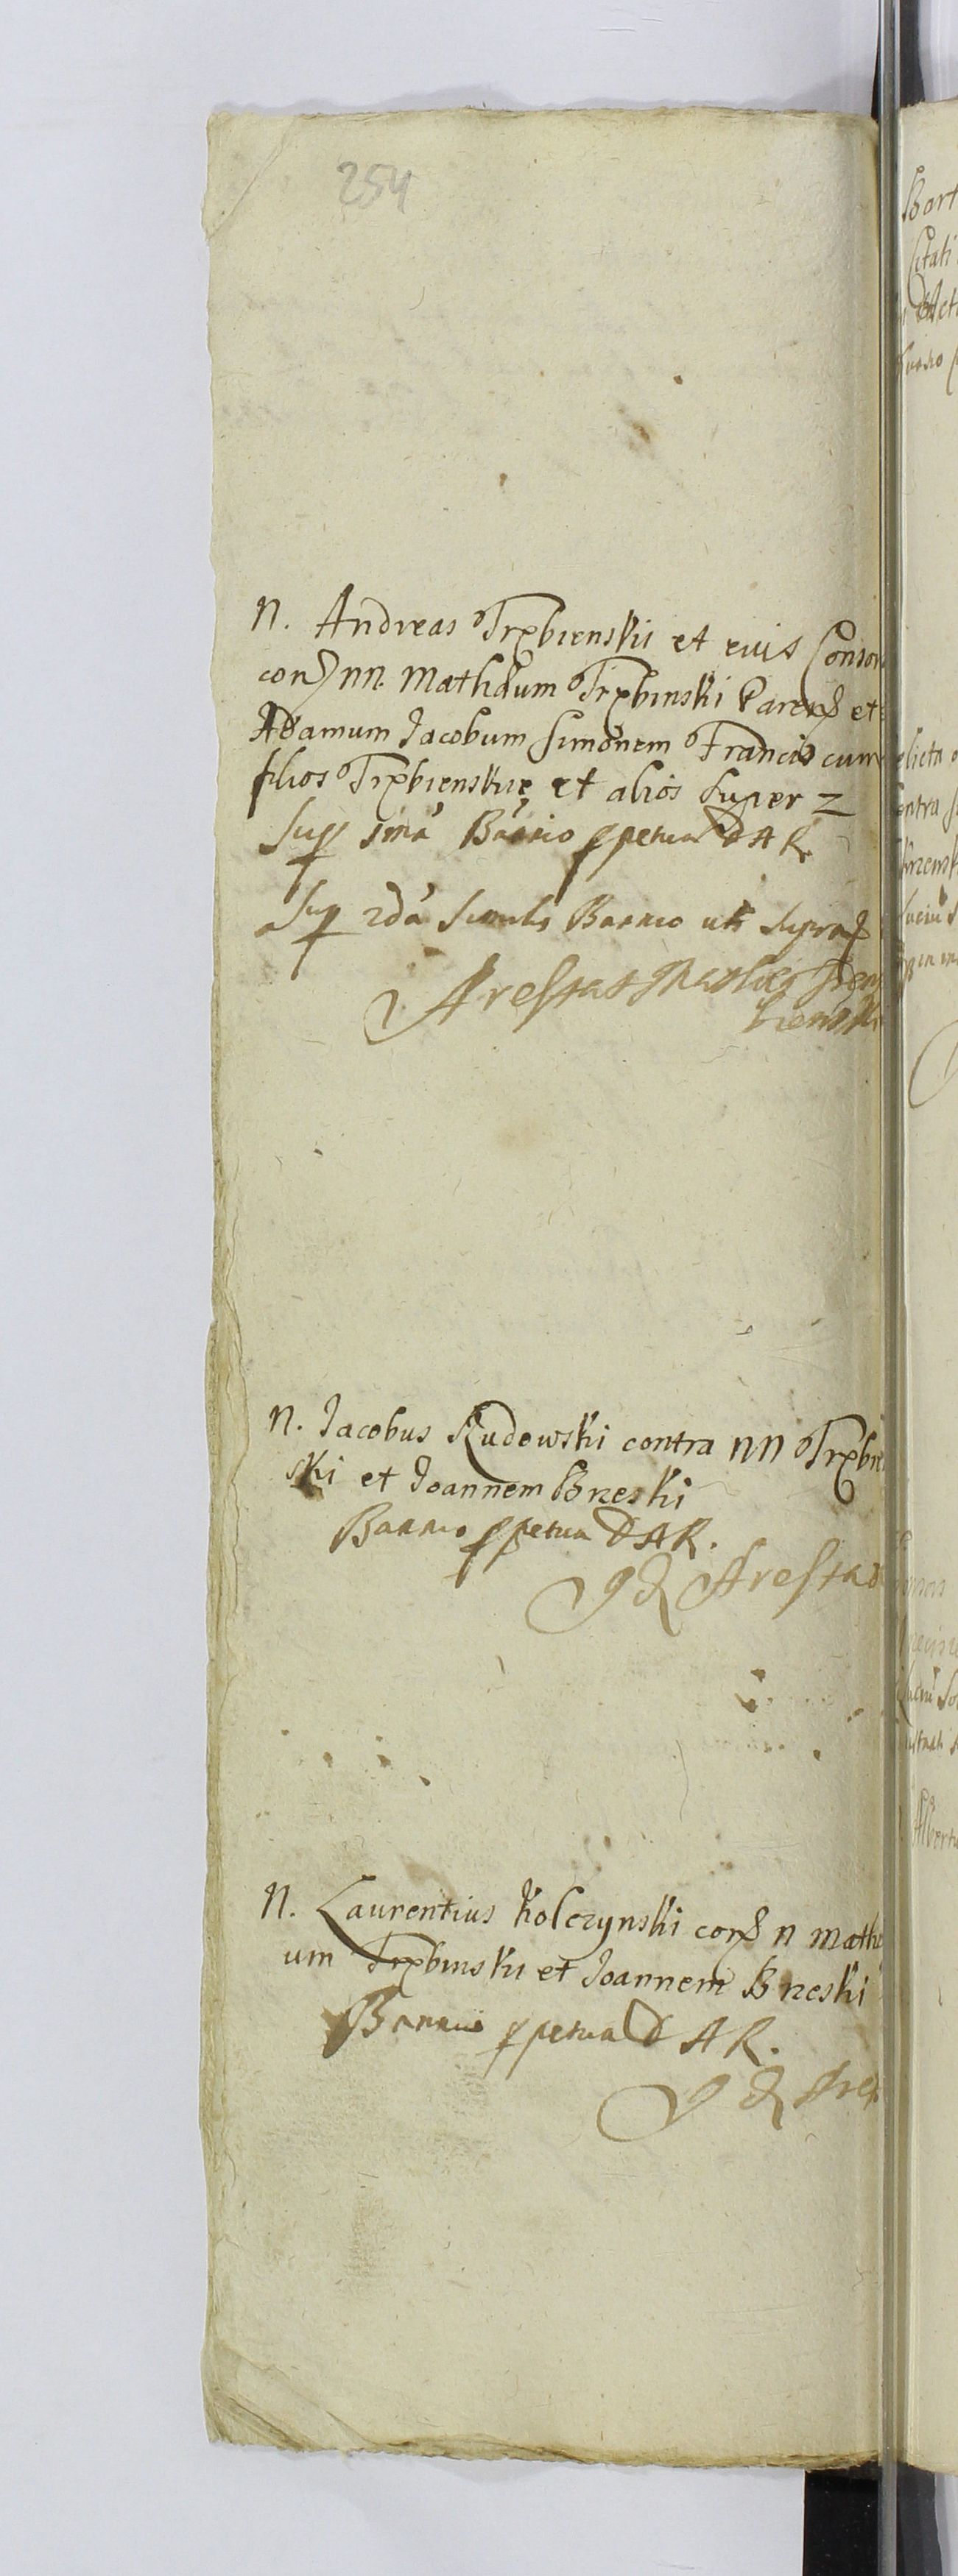 254
N. Andreas Trzbienskii et eius Conson
con NN. Mathæum Trzbinski Paren et
Adamum Jacobum Simonem Francis cum
filios Trzbienskie et alios Super 2
Sup 1mã Bannio ppetua D A R.
Sup 2dã Similis Bannio uti Supra
Arestat Mathe Trzy
bienski
N. Jacobus Rudowski contra NN Trzbie
ski et Joannem Brzeski
Bannio ppetua D A R.
Arestat
N. Laurentius Kolczynski con N Mathe
um Trzbinski et Joannem Brzeski
Bannio ppetua D A R.
Ares